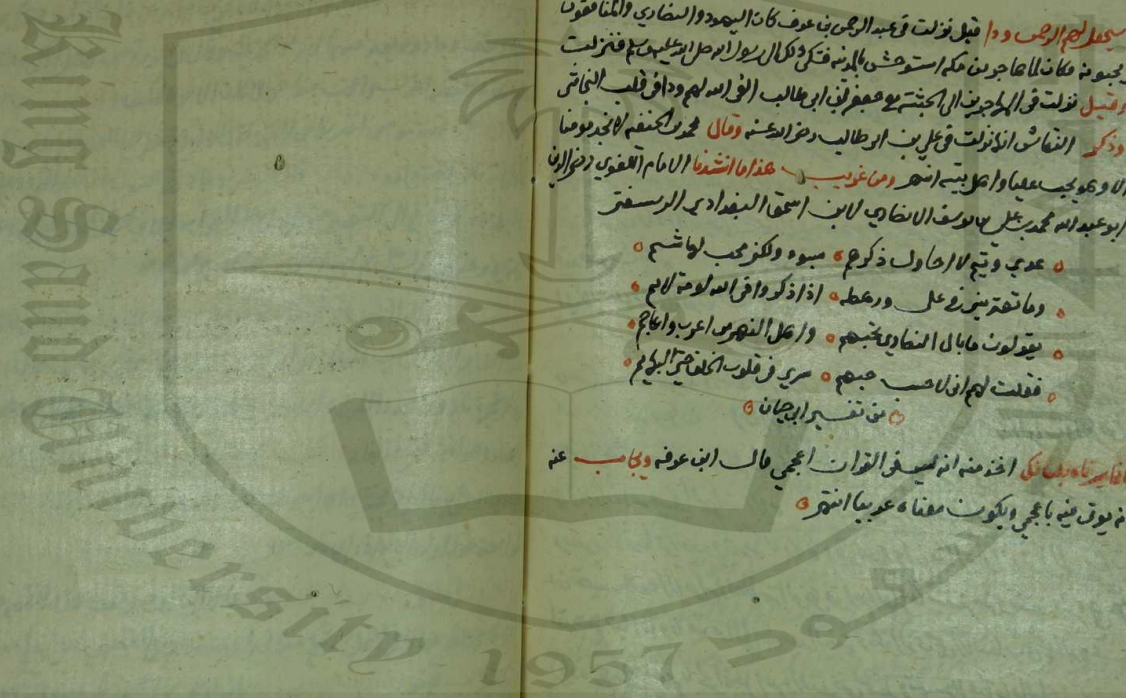 سيجعل لهم الرحمن ودا قيل نزلت في عبد الرحمن بن عوف كان اليهود والنصارى والمنافقون
يحبونه وكان لما هاجر من مكه استوحش بالمدينة فشكى ذلك الى رسول الله صلى الله عليه وسلم فنزلت
وقيل نزلت في المهاجرين الى الحبشة مع جعفر بن ابي طالب القى الله لهم ودا في قلب النجاشي
وذكر النقاش انها نزلت في علي بن ابي طالب رضي الله عنه وقال محمد بن الحنفيه لا تجد مومنا
الا وهو يحب عليا واهل بيته انتهى ومن غريب هذا ما انشدنا الامام اللغوي رضي الدين
ابو عبد الله محمد بن علي بن يوسف الانصاري لابن اسحق البغدادي الرسعني
عدي وتيم لا احاول ذكرهم بسوء ولكني محب لهاشم
وما تعتريني في علي ورهطه اذا ذكروا في الله لومة لايم
يقولون ما بال النصارى تحبهم واهل النهى من اعرب واعاجم
فقلت لهم اني لاحسب حبهم سرى في قلوب الخلق حتى البهايم
من تفسير ابي حيان
فانما يسرناه بلسانك اخذ منه انه ليس في القران اعجمي قال ابن عرفه ويجاب عنه
انه يوتى فيه باعجمي ويكون معناه عربيا انتهى
King Saud University 1957